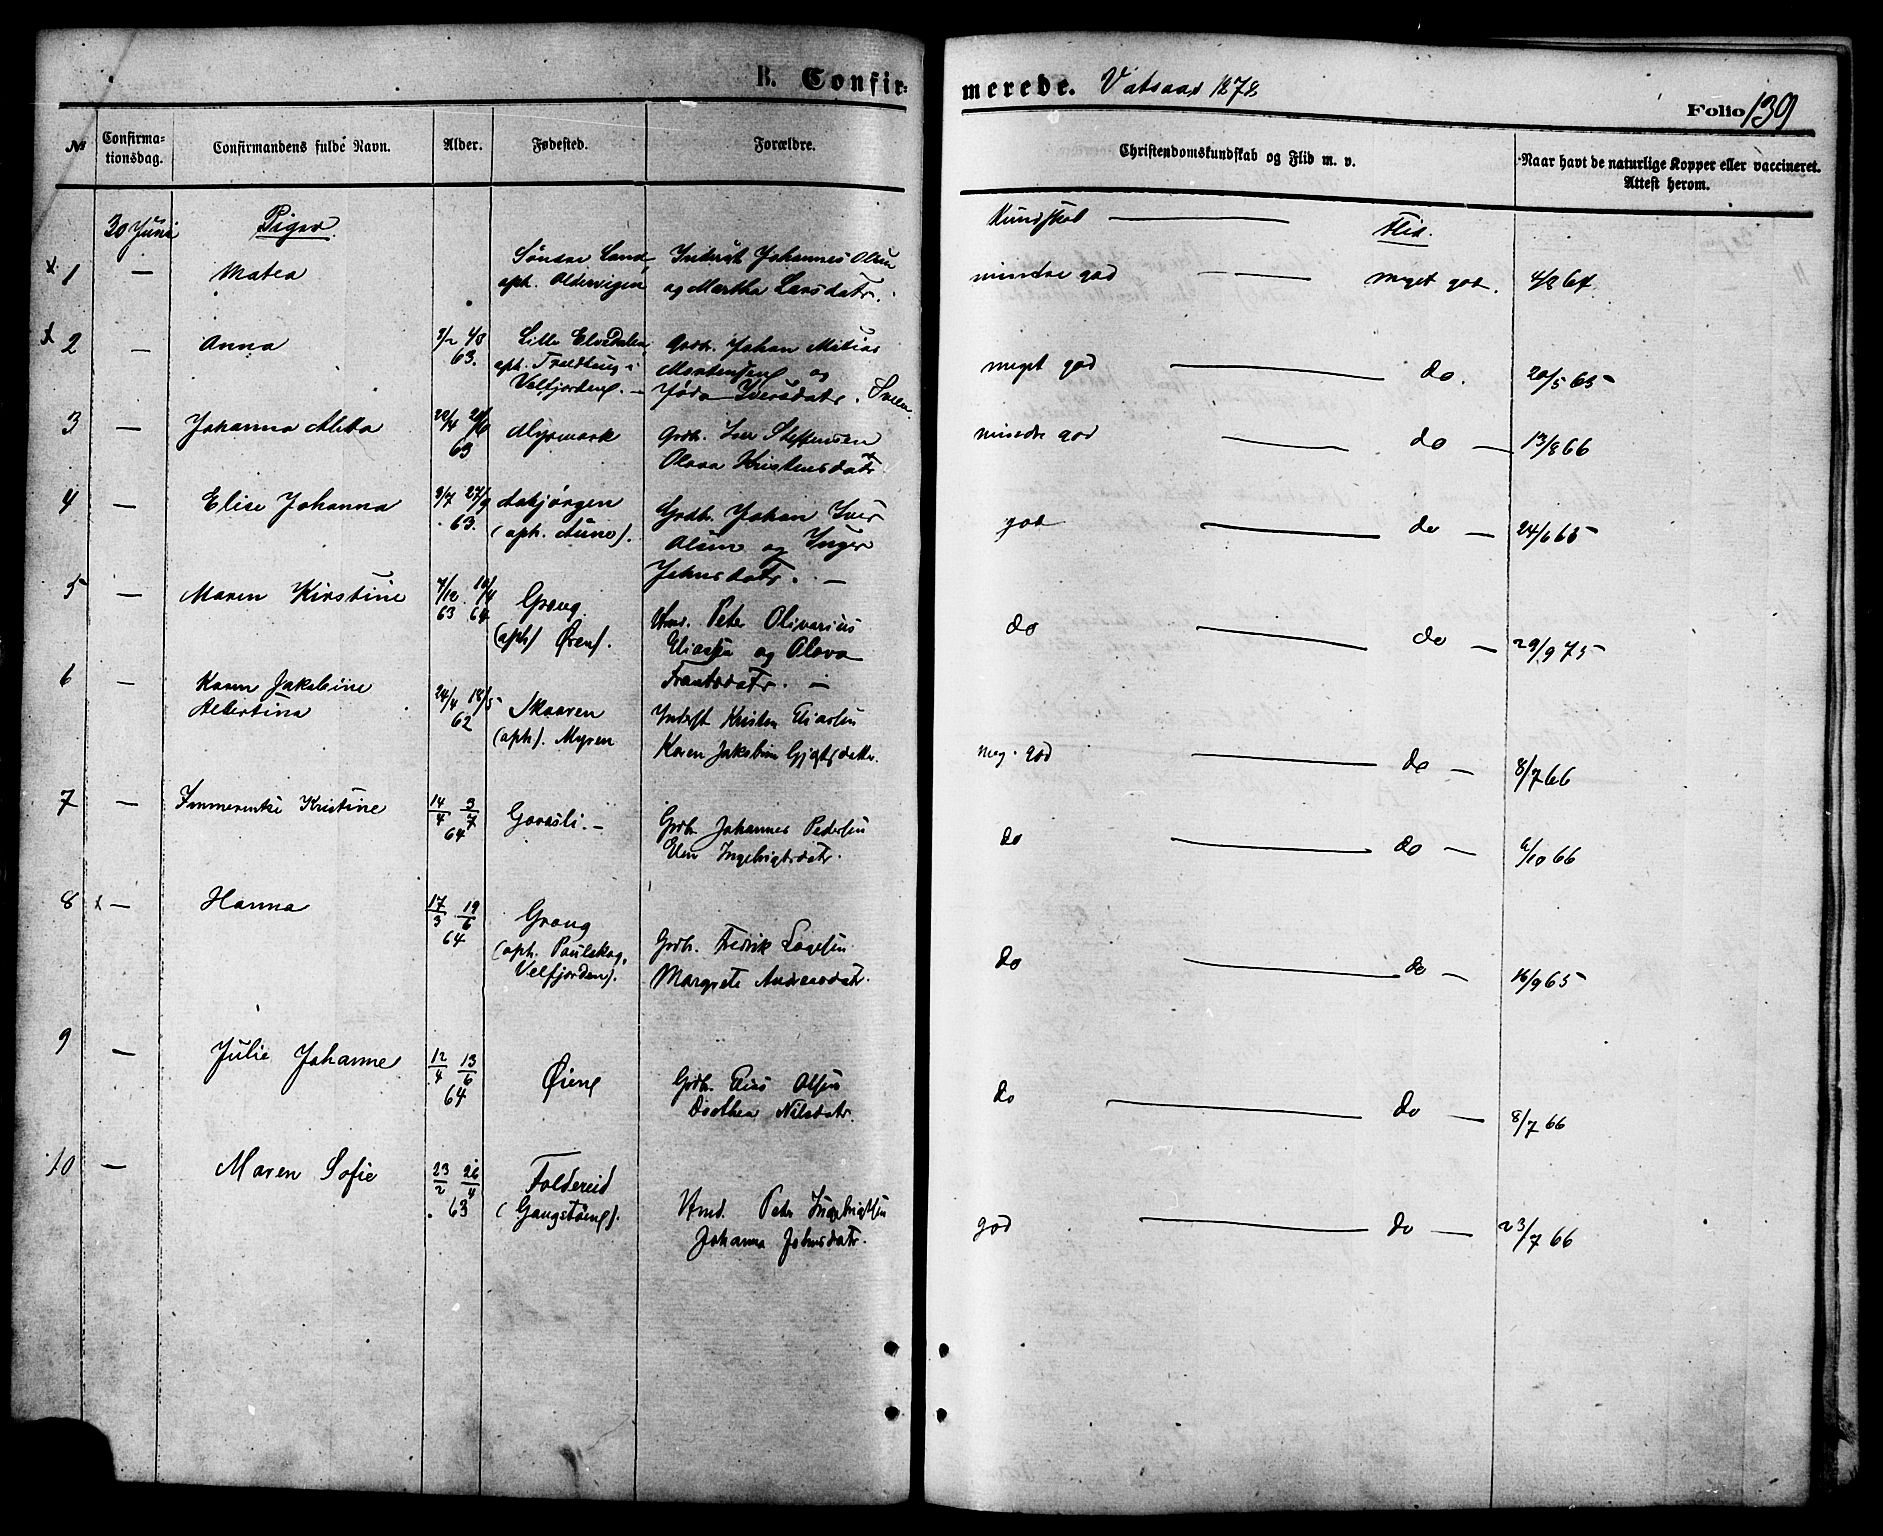 B. Confir-
merede. Vatsaas 1878
Folio 139
№
Confirma-
tionsdag.
Confirmandens fulde Navn.
Alder.
Fødested.
Forældre.
Christendomskundskab og Flid m. v.
Naar havt de naturlige Kopper eller vaccineret.
Attest herom.
30 Juni
Piger
Kundskab — Flid.
x 1 — Matea
Søndre Land,
oph. Oldervigen
Inderst Johannes Olsen
og Martha Larsdatr.
mindre god — — meget god. 4/8 67.
x 2 — Anna
63.
Lille
oph.
Velfjorden. —
Grdbr. Johan Matias
Mortensen og
Iversdatr.
meget god — do. 20/5 65
3 — Johanna
63
Myrmark
Grdb. Iver Steffensen
Olava Kristensdatr
mindre god — do — 13/8 66
4 — Elise Johanna
3/7 27/9
63.
(oph. Aune).
Grdb. Johan Iver
Olsen og Inger
Johnsdatr. —
god — do — 24/6 65
5 — Maren Kirstine
7/12 10/4
63 64
Grong
(oph) Øren.
Hmd. Peter Olivarius
Eliassen og Olava
Frantsdatr. —
do — do — 29/9 75
6 — Karen Jakobine
Albertina
24/4 18/5
62
Skaaren
(oph). Myren
Inderst Kristen Eliassen
Karen Jakobine
meg. god — do — 8/7 66
7 — Kristine
14/4 3/7
64
Gaasli. —
Grdb. Johannes Pedersen
Elen Ingebrigtsdatr.
do — do — 9/10 66
8 x — Hanna
17/3 19/6
64
Grong
(oph. Paulskog,
Velfjorden).
Grdb. Fredrik
Margrete Andreasdatr.
do — do — 16/9 65
9 — Julie Johanne
12/4 13/6
64
Øieng
Grdb. Elias Olsen
Dorthea Nilsdatr.
do — do — 8/7 66
10 — Maren Sofie
23/2 26/4
63
Foldereid
(Gangstøen).
Hmd. Peter Ingebrigtsen
Johanna Johnsdatr.
god — do — 23/7 66